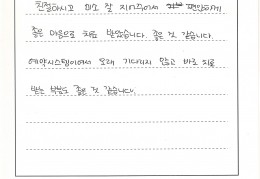 친절하시고 미소 잘 지어주어서 편안하게
좋은 마음으로 치료 받았습니다. 좋은 것 같습니다.
예약시스템이어서 오래 기다리지 않고 바로 치료
받는 부분도 좋은 것 같습니다.